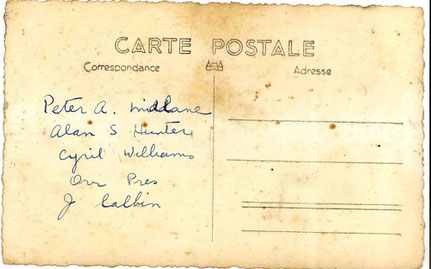 CARTE POSTALE
Correspondance
Adresse
Peter A. Midlane
Alan S Hunter
Cyril Williams
Orr Pres
J